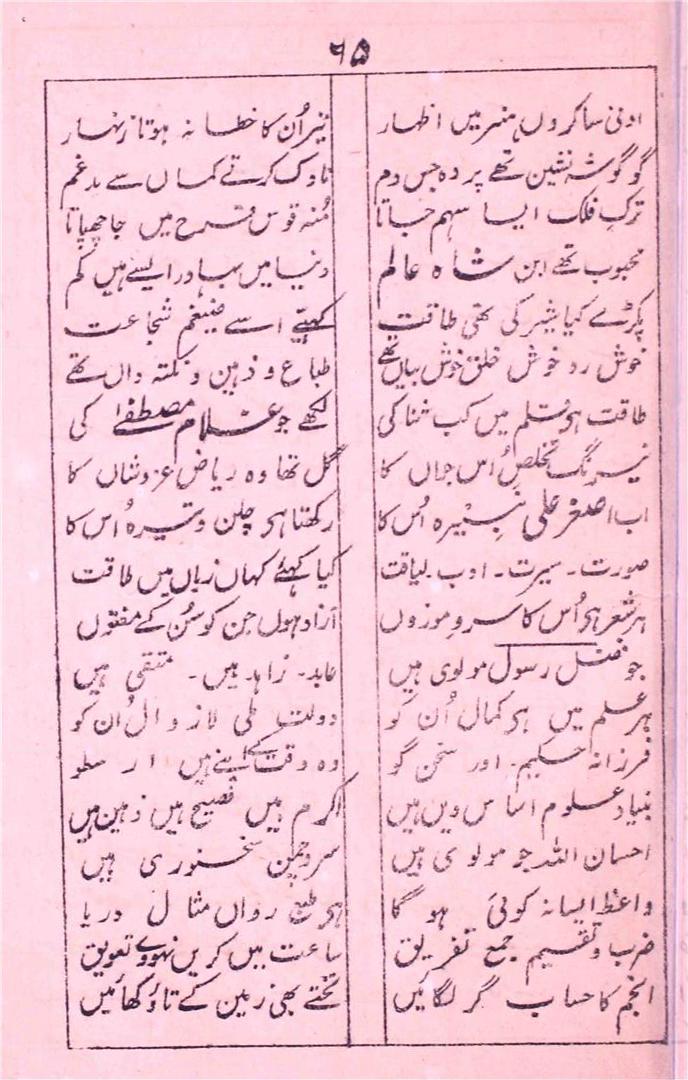 ۶۵
ادنیٰ سا کروں ہنر میں اظہار تیر اُن کا خطا نہ ہوتا زنہار
گو گوشہ نشین تھے پردہ جس دم ناوک کرتے کماں سے مدغم
ترکِ فلک ایسا سہم جاتا مُنہ قوس قزح میں جا چھپاتا
محبوب تھے ابن شاہ عالم دنیا میں بہادر ایسے ہیں کم
پکڑے کیا شیر کی تھی طاقت کہیئے اسے ضیغم شجاعت
خوش رو خوش خلق خوش بیاں تھے طباع و ذہین و نکتہ داں تھے
طاقت ہی قلم میں کب ثنا کی لکھے جو غلام مصطفےٰ کی
نیرنگ تخلص اُس جواں کا گل تھا وہ ریاض عز و شاں کا
اب اصغر علی نبیرہ اُس کا رکھتا ہی چلن وتیرہ اُس کا
صورت۔ سیرت۔ ادب۔ لیاقت کیا کہئے کہاں زباں میں طاقت
ہر شعر ہی اُس کا سرو موزوں آزاد ہوں جن کو سُن کے مفتوں
جو فضل رسول مولوی ہیں عابد۔ زاہد ہیں۔ متقی ہیں
ہر علم میں ہی کمال اُن کو دولت ملی لازوال اُن کو
فرزانہ حکیم۔ اور سخن گو وہ وقت کے اپنے ہیں ارسطو
بنیاد علوم اساس دیں ہیں اکرم ہیں فصیح ہیں ذہین ہیں
احسان اللہ جو مولوی ہیں سرو چمن سخنوری ہیں
واعظ ایسا نہ کوئی ہو گا ہی طبع رواں مثال دریا
ضرب و تقسیم جمع تفریق ساعت میں کریں نہووے تعویق
انجم کا حساب گر لگائیں تختے بھی زمین کے تاؤ کھائیں